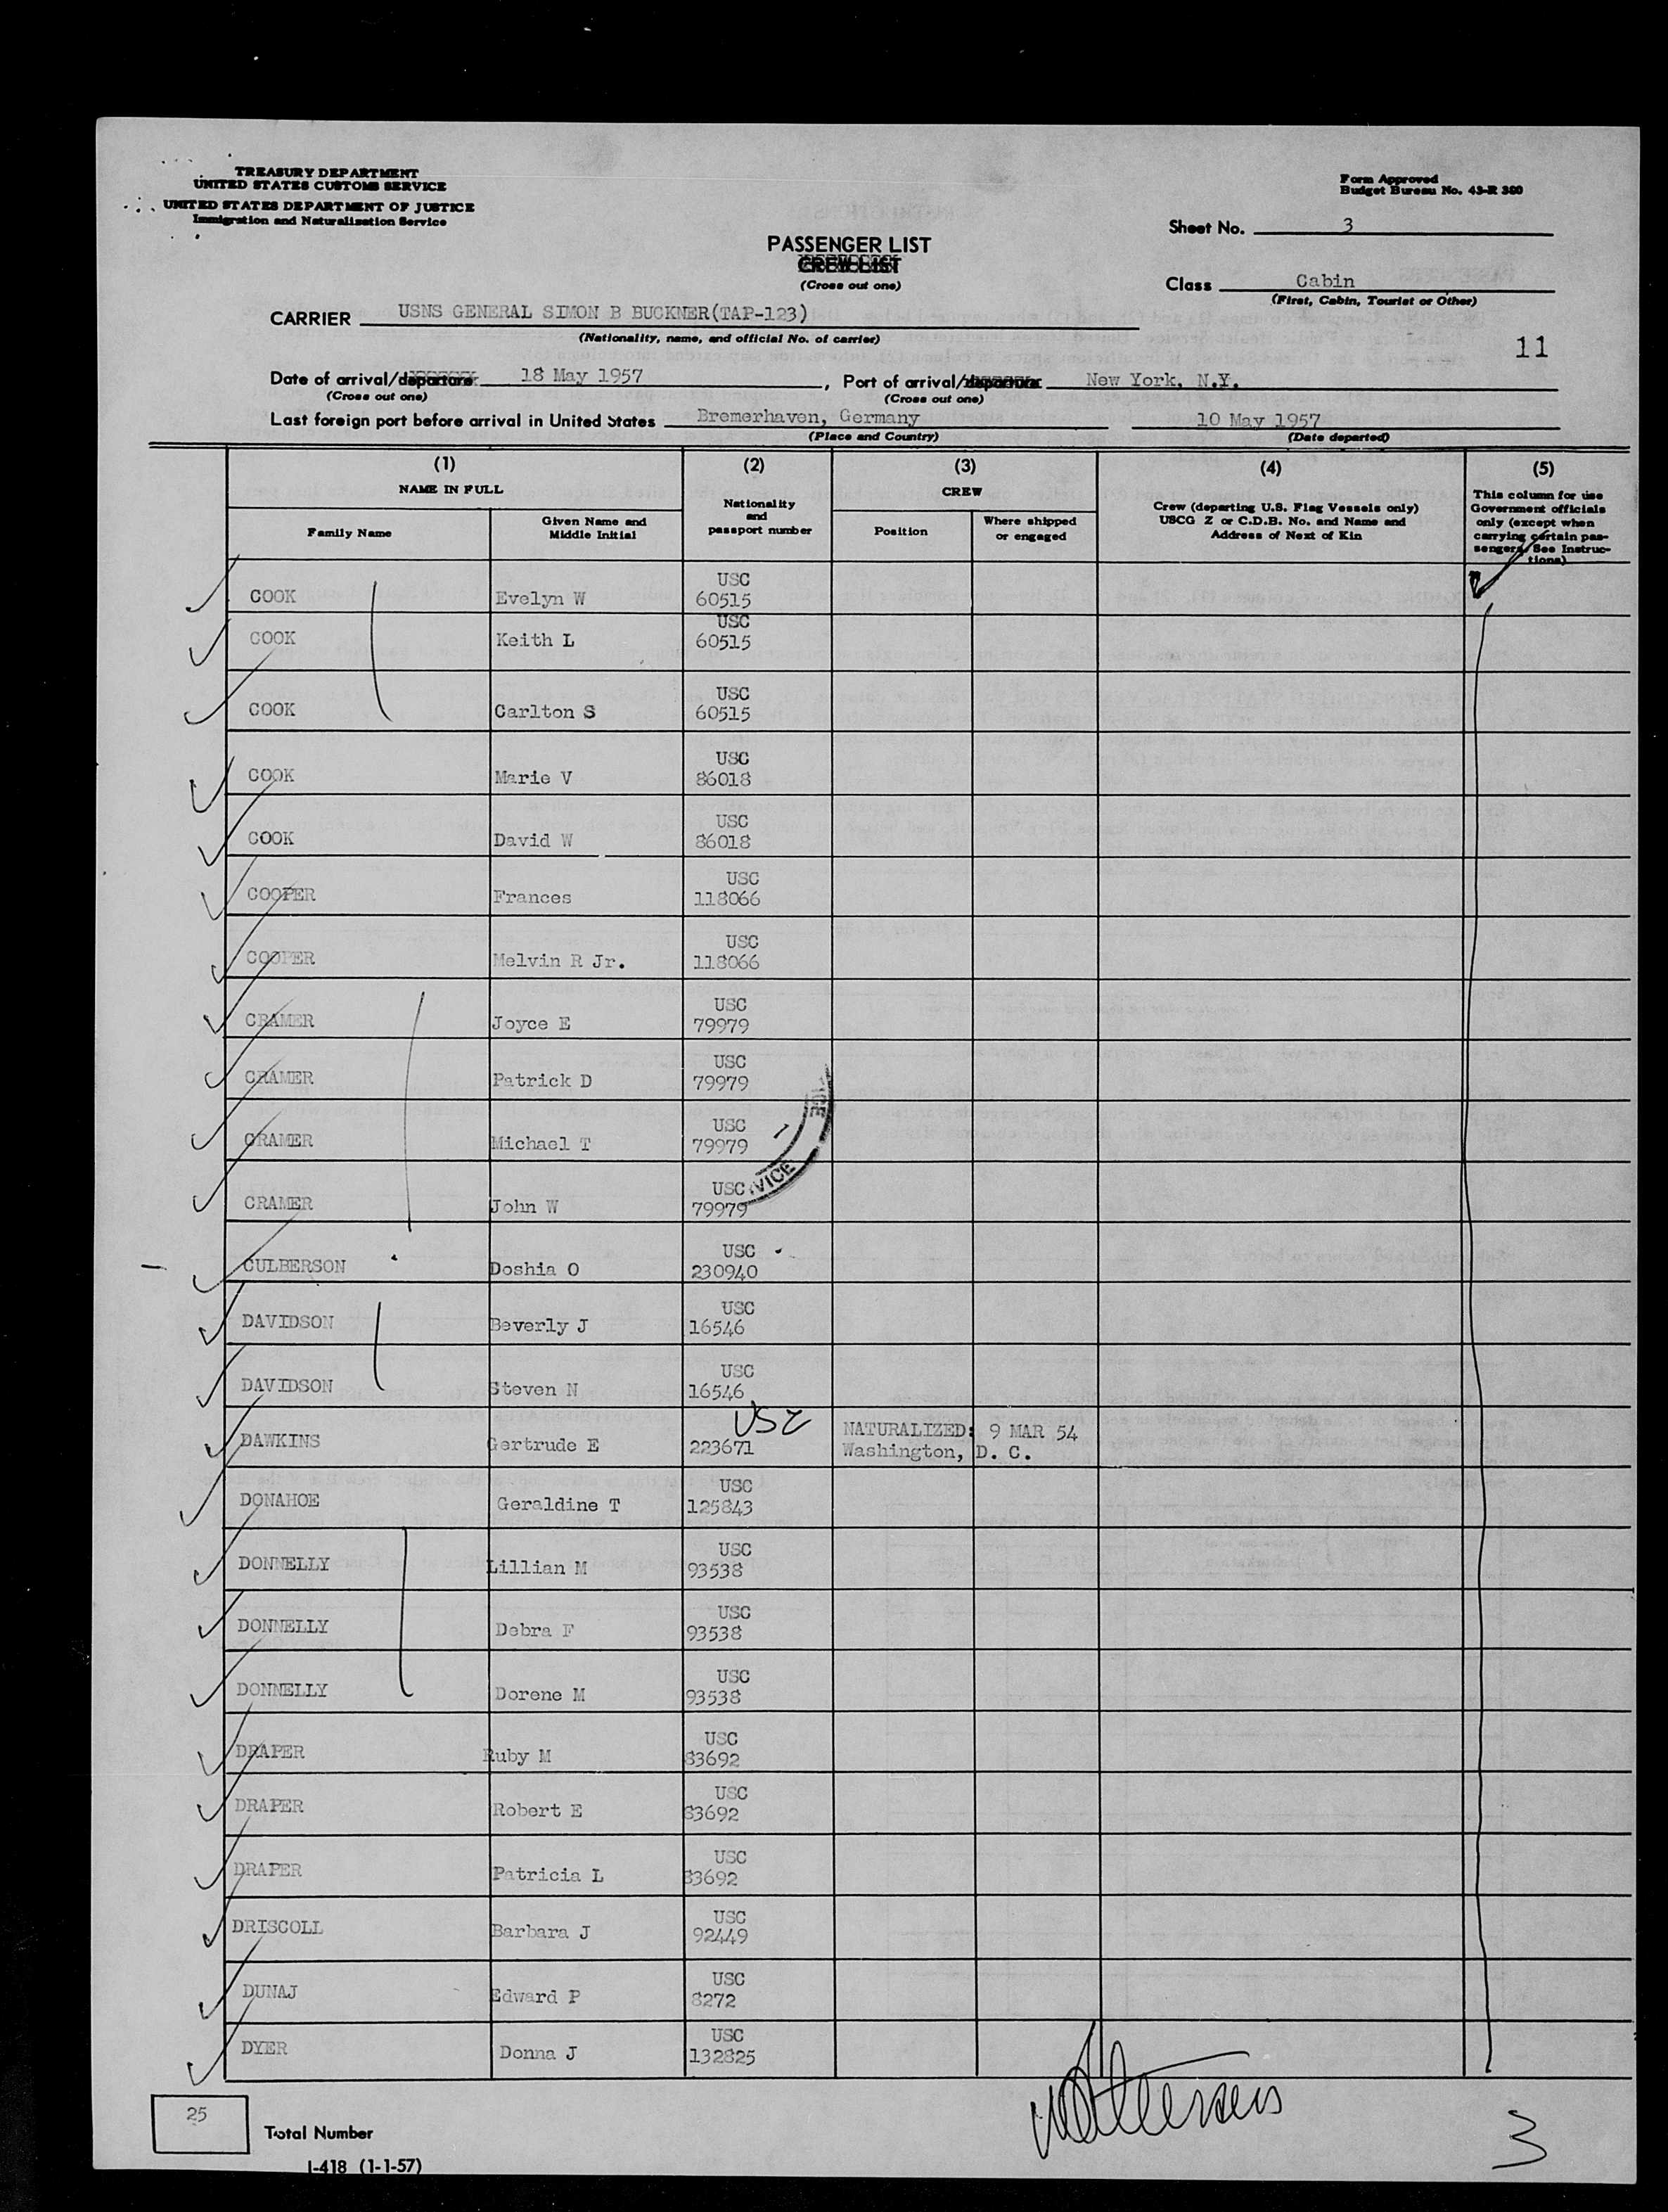 TREASURY DEPARTMENT
UNITED STATES CUSTOMS SERVICE
UNITED STATES DEPARTMENT OF JUSTICE
Immigration and Naturalization Service
Form Approved
Budget Bureau No. 43-R 380
Sheet No. 3
PASSENGER LIST
CREW LIST
(Cross out one)
Class Cabin
(First, Cabin, Tourist or Other)
CARRIER USNS GENERAL SIMON B BUCKNER(TAP-123)
(Nationality, name, and official No. of carrier)
11
Date of arrival/departure 18 May 1957, Port of arrival/departure New York, N.Y.
(Cross out one) (Cross out one)
Last foreign port before arrival in United States Bremerhaven, Germany 10 May 1957
(Place and Country) (Date departed)
(1) (2) (3) (4) (5)
NAME IN FULL
Family Name
Given Name and Middle Initial
Nationality and passport number
CREW
Position
Where shipped or engaged
Crew (departing U.S. Flag Vessels only)
USCG Z or C.D.B. No. and Name and
Address of Next of Kin
This column for use
Government officials
only (except when
carrying certain pas-
sengers. See Instruc-
tions)
COOK Evelyn W USC 60515
COOK Keith L USC 60515
COOK Carlton S USC 60515
COOK Marie V USC 86018
COOK David W USC 86018
COOPER Frances USC 118066
COOPER Melvin R Jr. USC 118066
CRAMER Joyce E USC 79979
CRAMER Patrick D USC 79979
CRAMER Michael T USC 79979
CRAMER John W USC 79979
VICE
CULBERSON Doshia O USC 230940
DAVIDSON Beverly J USC 16546
DAVIDSON Steven N USC 16546
DAWKINS Gertrude E USC 223671 NATURALIZED: 9 MAR 54
Washington, D. C.
DONAHOE Geraldine T USC 125843
DONNELLY Lillian M USC 93538
DONNELLY Debra F USC 93538
DONNELLY Dorene M USC 93538
DRAPER Ruby M USC 83692
DRAPER Robert E USC 83692
DRAPER Patricia L USC 83692
DRISCOLL Barbara J USC 92449
DUNAJ Edward P USC 8272
DYER Donna J USC 132825
25
Total Number
I-418 (1-1-57)
3